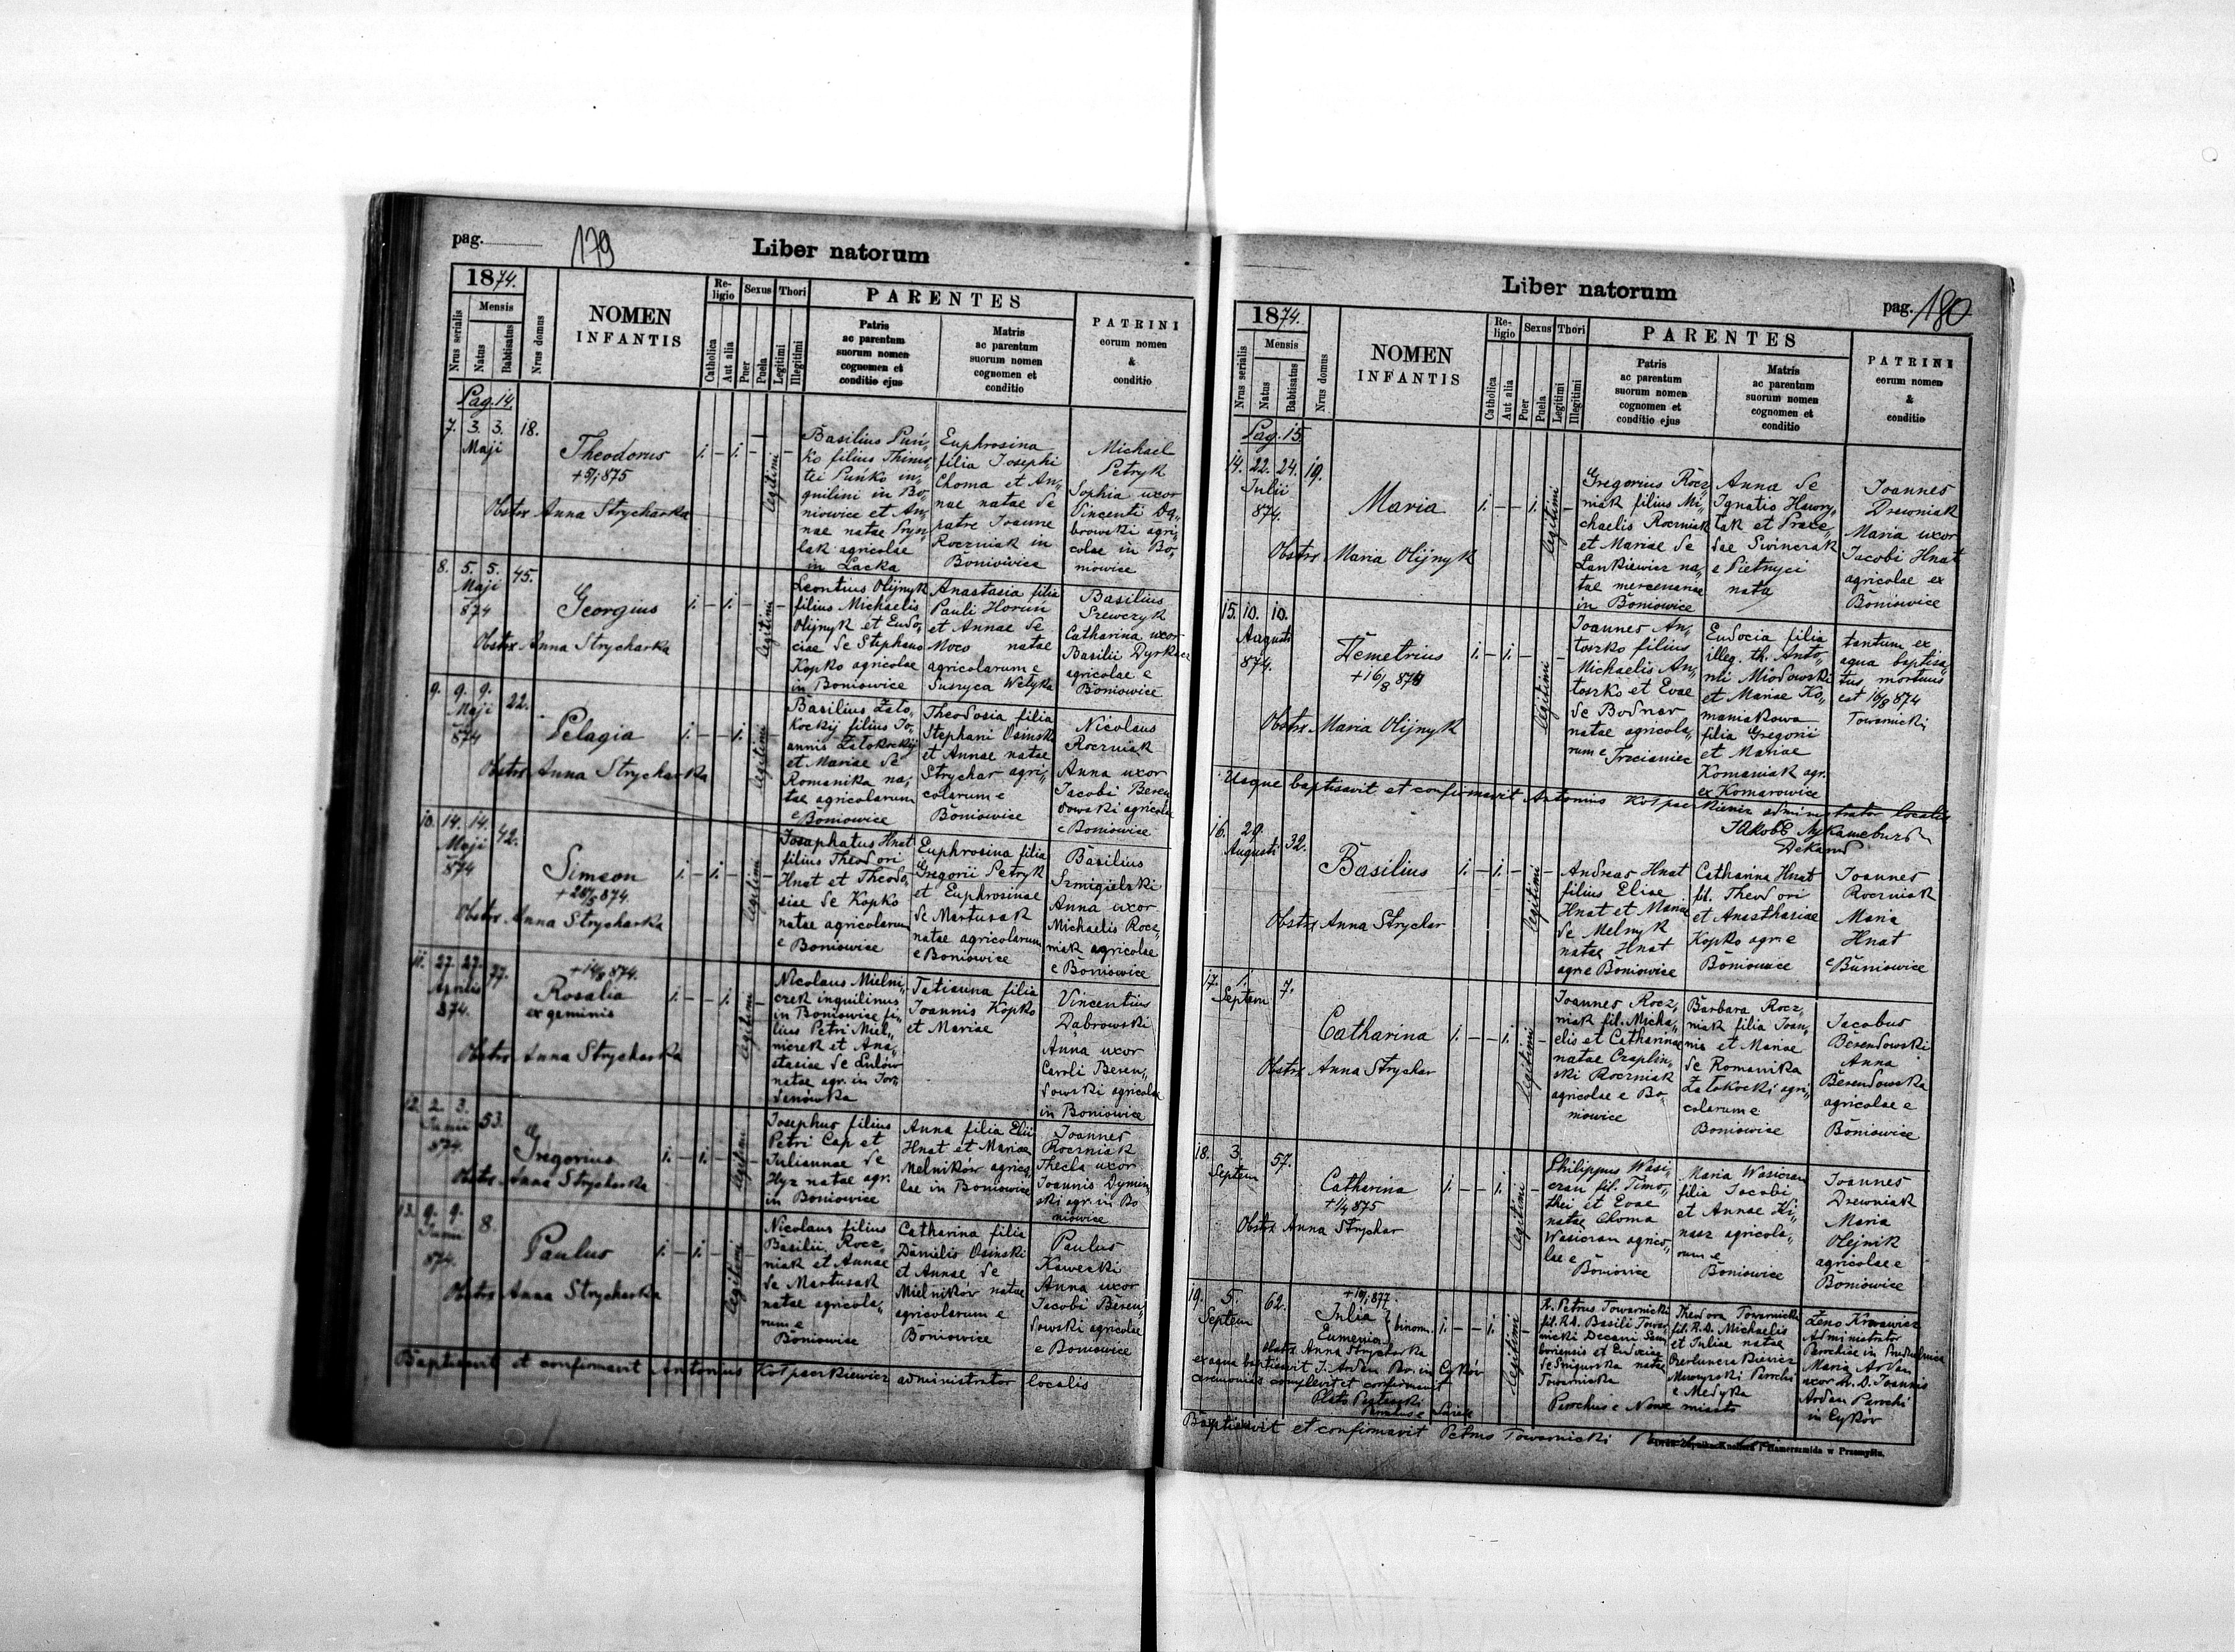 pag. 179
Liber natorum
1874.
Nrus serialis
Mensis
Natus
Babtisatus
Nrus domus
NOMEN
INFANTIS
Religio
Catholica
Aut alia
Sexus
Puer
Puela
Thori
Legitimi
Illegitimi
PARENTES
Patris
ac parentum
suorum nomen
cognomen et
conditio ejus
Matris
ac parentum
suorum nomen
cognomen et
conditio
PATRINI
eorum nomen
&
conditio
Pag. 14.
7. 3. 3. 18.
Maji
Theodorus
+ 5/1 875
Obstrx Anna Strycharka
1. – 1. –
legitimi
Basilius Puń„
ko filius Thimo„
tei Puńko in„
quilini in Bo„
niowice et An„
nae natae Prys„
lak agricolae
in Lacka
Euphrosina
filia Josephi
Choma et An„
nae natae de
patre Joanne
Roczniak in
Boniowice
Michael
Petryk
Sophia uxor
Vincenti Dą„
browski agri„
colae in Bo„
niowice
8. 5. 5. 45.
Maji
874
Georgius
Obstrx Anna Strycharka
1. – 1. –
legitimi
Leontius Olijnyk
filius Michaelis
Olijnyk et Eudo„
ciae de Stephano
Kopko agricolae
in Boniowice
Anastasia filia
Pauli Horun
et Annae de
Moco natae
agricolarum e
Suszyca Wełyka
Basilius
Szewczyk
Catharina uxor
Basilii Dyrkacz
agricolae e
Boniowice
9. 9. 9. 22.
Maji
874
Pelagia
Obstrx Anna Strycharka
1. – – 1. –
legitimi
Basilius Zało„
kockij filius Jo„
annis Załokockij
et Mariae de
Romanika na„
tae agricolarum
e Boniowice
Theodosia filia
Stephani Osinski
et Annae natae
Strychar agri„
colarum e
Boniowice
Nicolaus
Roczniak
Anna uxor
Jacobi Beren
dowski agricolae
e Boniowice
10. 14. 14. 42.
Maji
874
Simeon
+ 28/5 874.
Obstrx Anna Strycharka
1. – 1. –
legitimi
Josaphatus Hnat
filius Theodori
Hnat et Theodo„
siae de Kopko
natae agricolarum
e Boniowice
Euphrosina filia
Gregorii Petryk
et Euphrosinae
de Martusak
natae agricolarum
e Boniowice
Basilius
Szmigielski
Anna uxor
Michaelis Rocz„
niak agricolae
e Boniowice
11. 27. 27. 77.
Aprilis
874.
+ 14/8 874.
Rosalia
ex geminis
Obstrx Anna Strycharka
1. – – 1. –
legitimi
Nicolaus Mielni„
czek inquilinus
in Boniowice fi„
lius Petri Miel„
niczek et Ana„
stasiae de Lulów
natae agr. in Jor„
danówka
Tatianna filia
Joannis Kopko
et Mariae
Vincentius
Dąbrowski
Anna uxor
Caroli Beren„
dowski agricolae
in Boniowice
12. 2. 3. 53.
Junii
874.
Gregorius
Obstrx Anna Strycharka
1. – 1. –
legitimi
Josephus filius
Petri Cap et
Juliannae de
Hyz natae agr.
in Boniowice
Anna filia Elii
Hnat et Mariae
Melników agrico„
lae in Boniowice
Joannes
Roczniak
Thecla uxor
Joannis Dymin„
ski agr. in Bo
niowice
13. 9. 9. 8.
Junii
874.
Paulus
Obstrx Anna Strycharka
1. – 1. –
legitimi
Nicolaus filius
Basilii Rocz„
niak et Annae
de Martusak
natae agricola„
rum e
Boniowice
Catharina filia
Danielis Osinski
et Annae de
Mielników natae
agricolarum e
Boniowice
Paulus
Kawecki
Anna uxor
Jacobi Beren„
dowski agricolae
e Boniowice
Baptisavit et confirmavit Antonius Kolpaczkiewicz administrator localis
Liber natorum
pag. 180
1874.
Nrus serialis
Mensis
Natus
Babtisatus
Nrus domus
NOMEN
INFANTIS
Religio
Catholica
Aut alia
Sexus
Puer
Puela
Thori
Legitimi
Illegitimi
PARENTES
Patris
ac parentum
suorum nomen
cognomen et
conditio ejus
Matris
ac parentum
suorum nomen
cognomen et
conditio
PATRINI
eorum nomen
&
conditio
Pag. 15
14. 22. 24. 19.
Julii
874.
Maria
Obstrx Maria Olijnyk
1. – – 1. –
legitimi
Gregorius Rocz„
niak filius Mi„
chaelis Roczniak
et Mariae de
Lankiewicz na„
tae mercenariae
in Boniowice
Anna de
Ignatio Hawry„
lak et Praxe„
dae Swinczak
e Pietnyci
nata
Joannes
Drewniak
Maria uxor
Jacobi Hnat
agricolae ex
Boniowice
15. 10. 10.
Augusti
874.
Demetrius
+ 16/8 874
Obstrx Maria Olijnyk
1. – 1. –
legitimi
Joannes An„
toszko filius
Michaelis An„
toszko et Evae
de Bodnar
natae agricola„
rum e Trzcianiec
Eudocia filia
illeg. th. Anto„
nii Miodowski
et Mariae Ko„
maniakowa
filia Gregorii
et Mariae
Komaniak agr.
ex Komarowice
tantum ex
aqua baptisa„
tus mortuus
est 16/8 874
Towarnicki
Usque baptisavit et confirmavit Antonius Kolpaczkiewicz administrator localis
Dekand
16. 29. 32.
Augusti
Basilius
Obstrx Anna Strychar
1. – 1. –
legitimi
Andreas Hnat
filius Eliae
Hnat et Mariae
de Melnyk
natae Hnat
agr. e Boniowice
Catharina Hnat
fil. Theodori
et Anasthasiae
Kopko agr. e
Boniowice
Joannes
Roczniak
Maria
Hnat
e Boniowice
17. 1. 7.
Septem
Catharina
Obstrx Anna Strychar
1. – – 1. –
legitimi
Joannes Rocz„
niak fil. Micha„
elis et Catharinae
natae Czaplin„
ski Roczniak
agricolae e Bo
niowice
Barbara Rocz„
niak filia Joan„
nis et Mariae
de Romanika
Załokocki agri„
colarum e
Boniowice
Jacobus
Berendowski
Anna
Berendowska
agricolae e
Boniowice
18. 3. 57.
Septem
Catharina
+ 1/4 875
Obstrx Anna Strychar
1. – – 1. –
legitimi
Philippus Wasi„
czan fil. Timo„
thei et Evae
natae Choma
Wasiczan agrico„
lae e
Boniowice
Maria Wasiczan
filia Jacobi
et Annae Ki„
nasz agricola„
rum e
Boniowice
Joannes
Drewniak
Maria
Olejnik
agricolae e
Boniowice
19. 5. 62.
Septem
+ 10/1 877.
Julia } binom.
Eumenia
Obstx Anna Strycharka
ex aqua baptisavit J. Ardan Par. in Cyków
ceremonias complevit et confirmavit
1. – – 1. –
legitimi
R. Petrus Towarnicki
fil. R.D. Basili Towar„
nicki Decani Sam„
boriensis et Eudociae
de Smigurska natae
Towarnicka
Parochus e Nowe miasto
Theodora Towarnicka
fil. R.D. Michaelis
et Juliae natae
e Medyka
Zeno Krasowicz
Administrator
Parochiae in
Maria Ardan
uxor R. D. Joannis
Ardan Parochi
in Cyków
Baptisavit et confirmavit Petrus Towarnicki